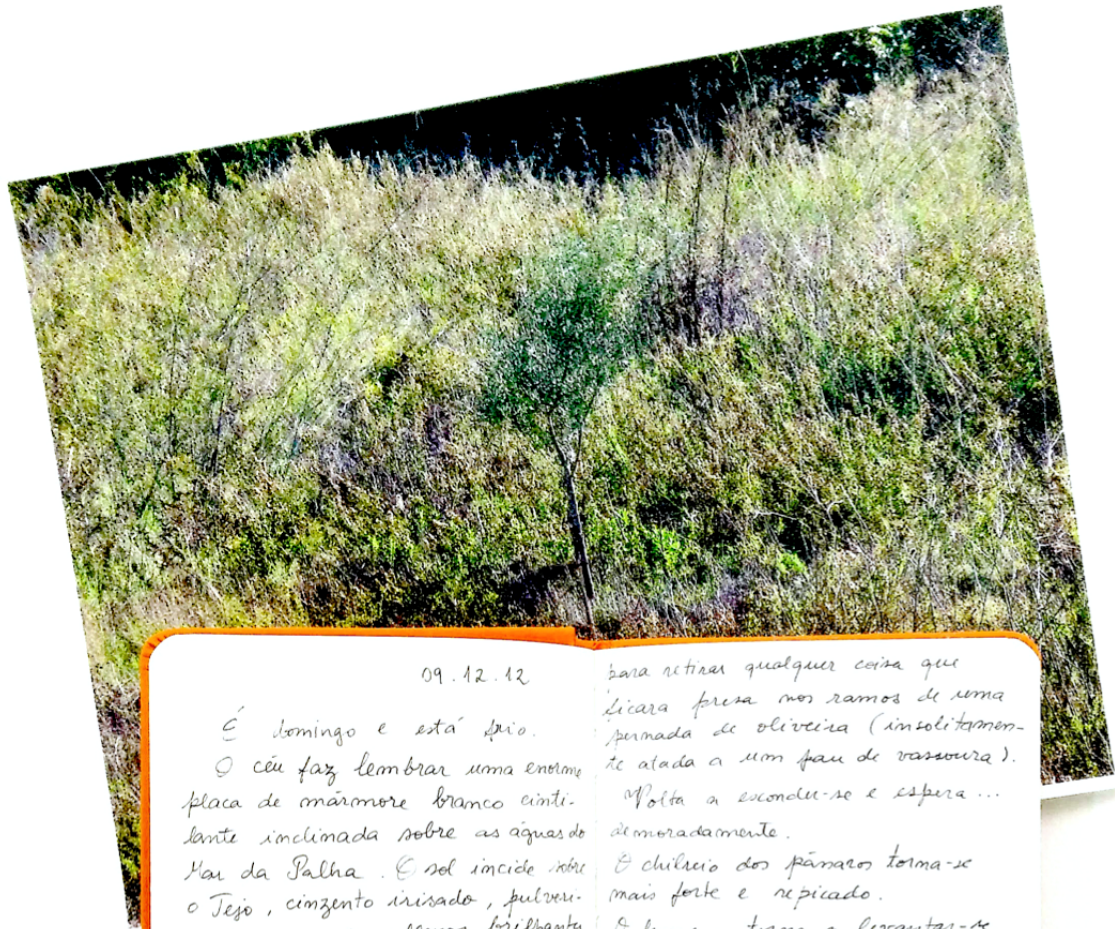 09.12.12
É domingo e está frio.
O céu faz lembrar uma enorme
placa de mármore branco cinti-
lante inclinada sobre as águas do
Mar da Palha. O sol incide sobre
o Tejo, cinzento irisado, pulveri-
brilhante
para retirar qualquer coisa que
ficara presa nos ramos de uma
pernada de oliveira (insolitamen-
te atada a um pau de vassoura).
Volta a esconder-se e espera...
demoradamente.
O chilreio dos pássaros torna-se
mais forte e repicado.
torna a levantar-se